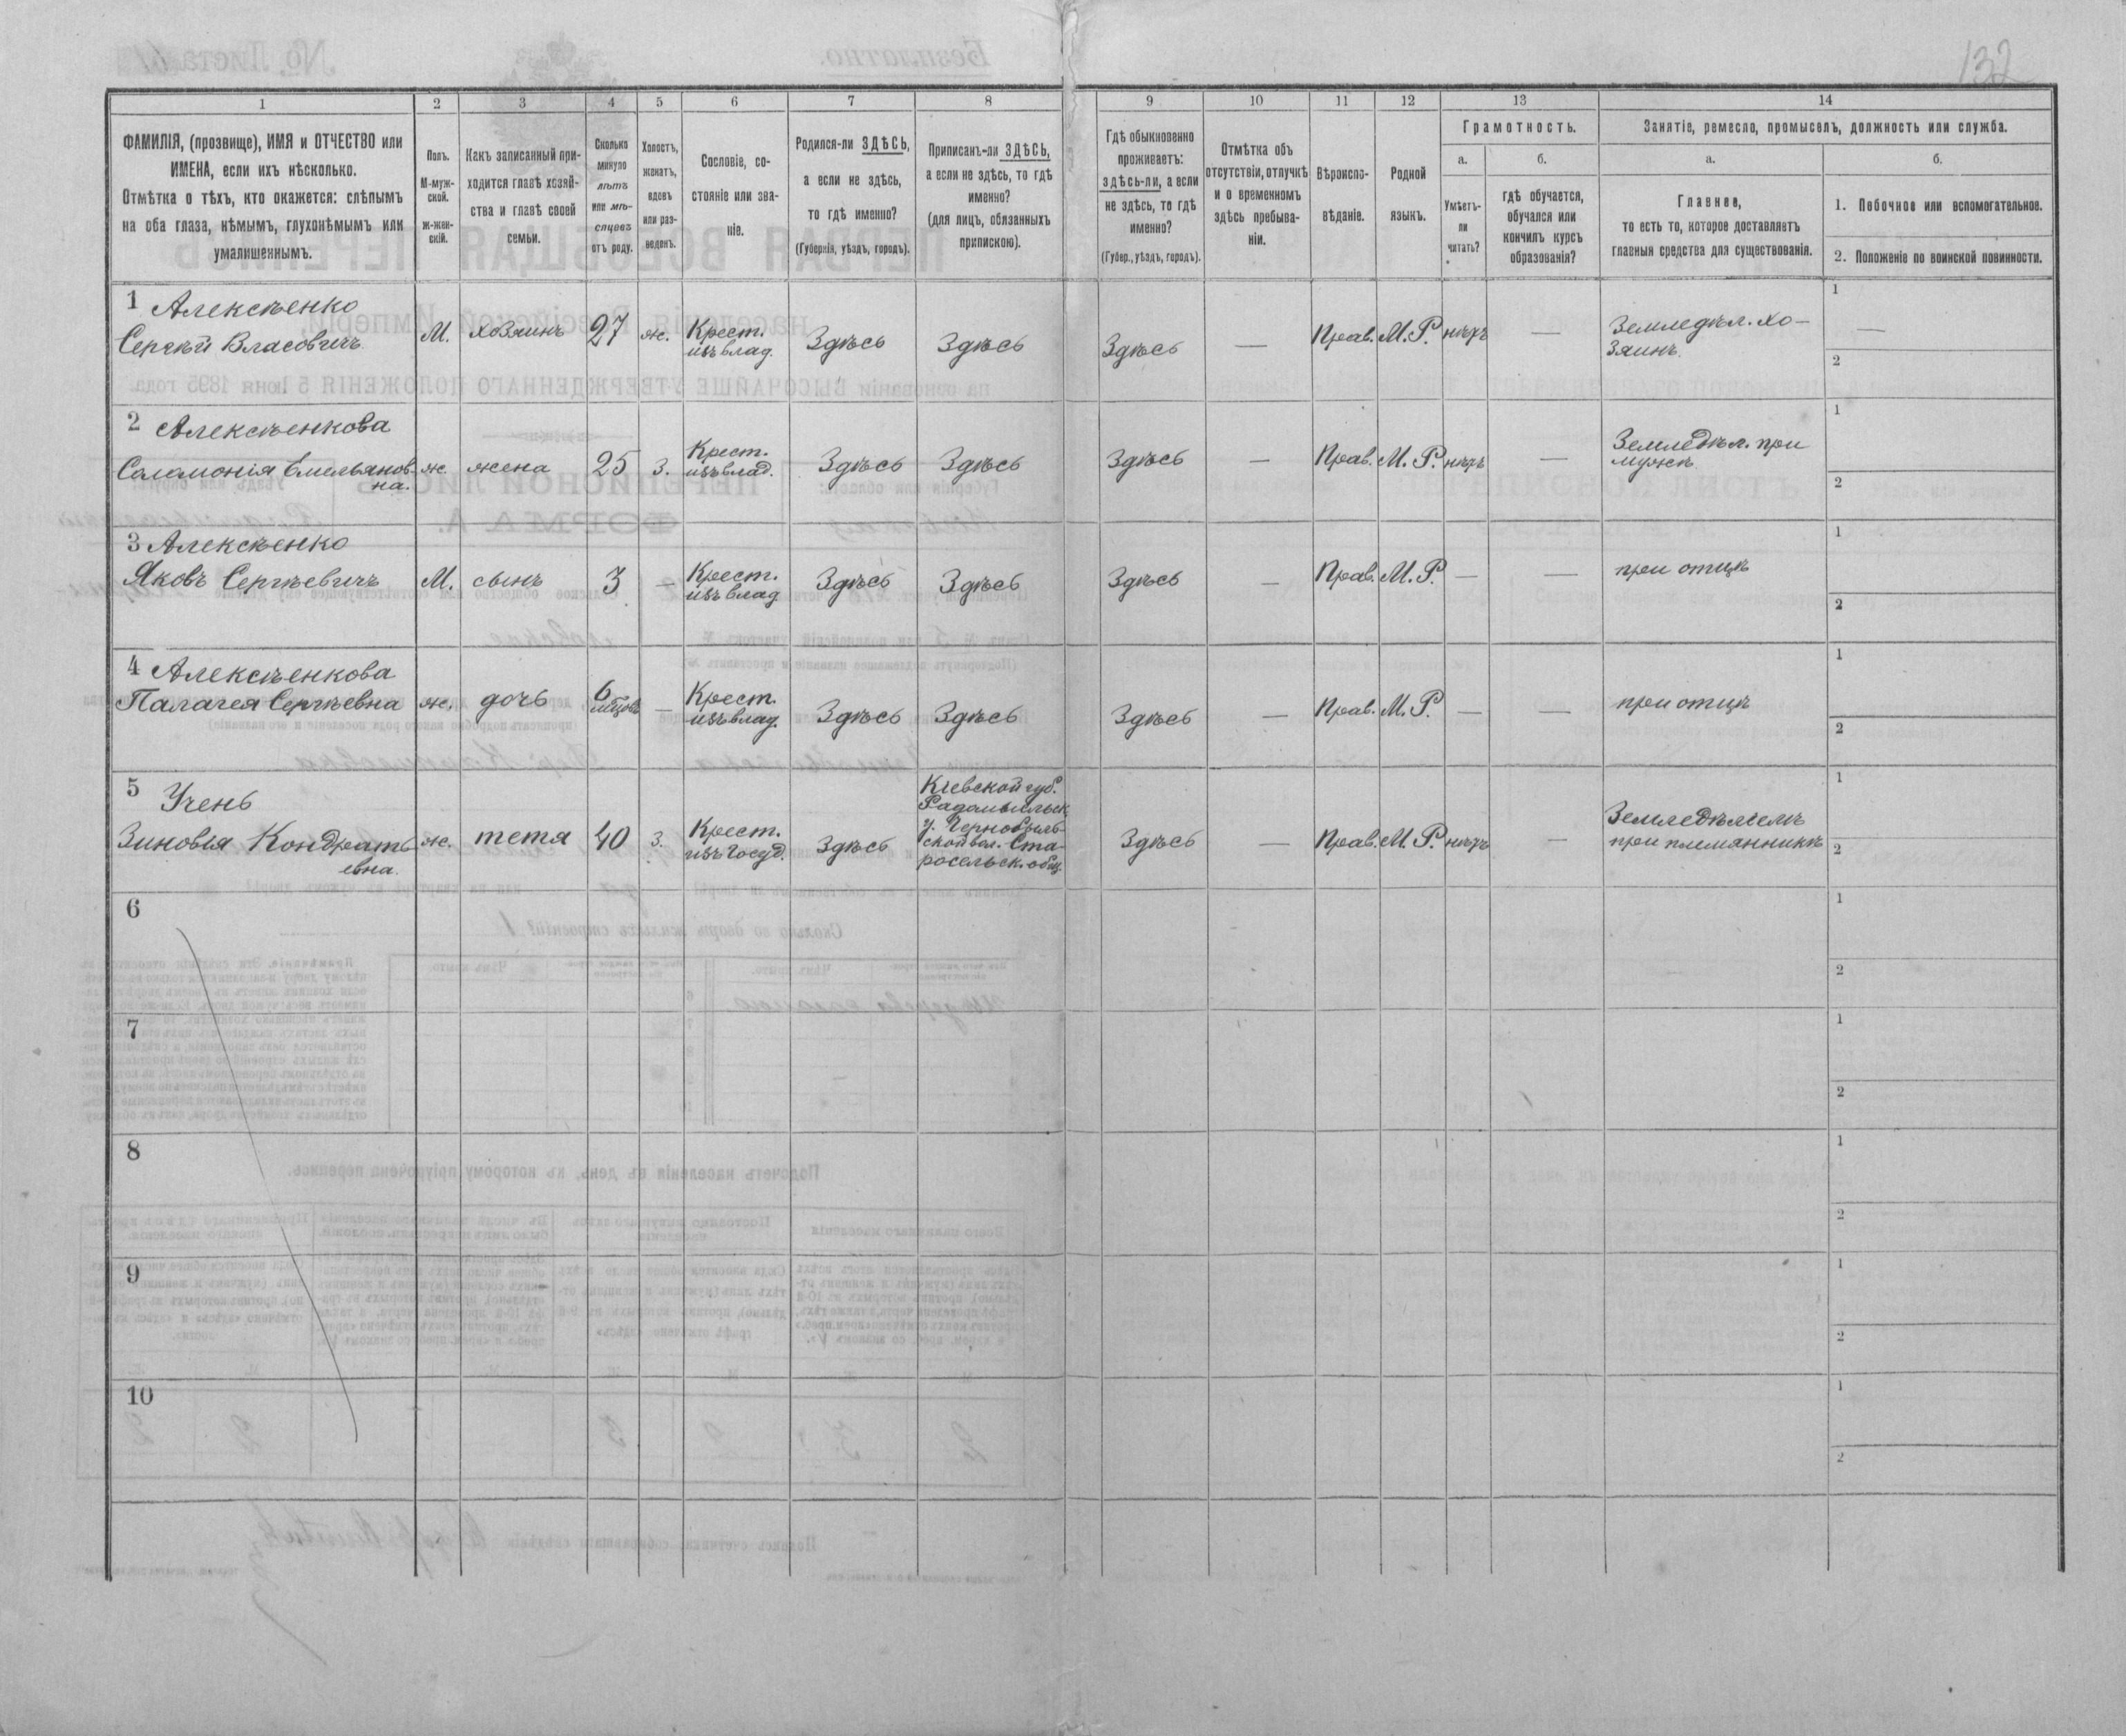 132
1
2
3
4
5
6
7
8
9
10
11
12
13
14
ФАМИЛІЯ, (прозвище), ИМЯ и ОТЧЕСТВО или
ИМЕНА, если ихъ нѣсколько.
Отмѣтка о тѣхъ, кто окажется: слѣпымъ
на оба глаза, нѣмымъ, глухонѣмымъ или
умалишеннымъ.
Полъ.
М-муж-
ской.
ж-жен-
скій.
Какъ записанный при-
ходится главѣ хозяй-
ства и главѣ своей
семьи.
Сколько
минуло
лѣтъ
или мѣ-
сяцевъ
отъ роду.
Холостъ,
женатъ,
вдовъ
или раз-
веденъ.
Сословіе, со-
стояніе или зва-
ніе.
Родился-ли ЗДѢСЬ,
а если не здѣсь,
то гдѣ именно?
(Губернія, уѣздъ, городъ).
Приписанъ-ли ЗДѢСЬ,
а если не здѣсь, то гдѣ
именно?
(для лицъ, обязанныхъ
припискою).
Гдѣ обыкновенно
проживаетъ:
здѣсь-ли, а если
не здѣсь, то гдѣ
именно?
(Губер., уѣздъ, городъ).
Отмѣтка объ
отсутствіи, отлучкѣ
и о временномъ
здѣсь пребыва-
ніи.
Вѣроиспо-
вѣданіе.
Родной
языкъ.
Грамотность.
а.
б.
Умѣетъ-
ли
читать?
гдѣ обучается,
обучался или
кончилъ курсъ
образованія?
Занятіе, ремесло, промыселъ, должность или служба.
а.
б.
Главное,
то есть то, которое доставляетъ
главныя средства для существованія.
1. Побочное или вспомогательное.
2. Положеніе по воинской повинности.
1 Алексѣенко
Сергѣй Власовичъ
М.
хозяинъ
27
ж.
Крест.
изъ влад.
Здѣсь
Здѣсь
Здѣсь
—
Прав.
М. Р.
нѣтъ
—
Земледѣл. хо-
зяинъ.
1
—
2
2 Алексѣенкова
Саламонія Емельянов-
на.
ж.
жена
25
З.
Крест.
изъ влад.
Здѣсь
Здѣсь
Здѣсь
—
Прав.
М. Р.
нѣтъ
—
Земледѣл. при
мужѣ
1
2
3 Алексѣенко
Яковъ Сергѣевичъ
М.
сынъ
3
—
Крест.
изъ влад
Здѣсь
Здѣсь
Здѣсь
—
Прав.
М. Р.
—
—
при отцѣ
1
2
4 Алексѣенкова
Палагея Сергѣевна
ж.
дочь
6
мѣцовъ
—
Крест.
изъ влад.
Здѣсь
Здѣсь
Здѣсь
—
Прав.
М. Р.
—
—
при отцѣ
1
2
5 Учень
Зиновія Кондрать
евна.
ж.
тетя
40
З.
Крест.
изъ Госуд.
Здѣсь
Кіевской губ.
Радомысльск.
у. Чернобыль-
ской вол. Ста-
росельск. общ.
Здѣсь
—
Прав.
М. Р.
нѣтъ
—
Земледѣліемъ
при племянникѣ
1
2
6
1
2
7
1
2
8
1
2
9
1
2
10
1
2